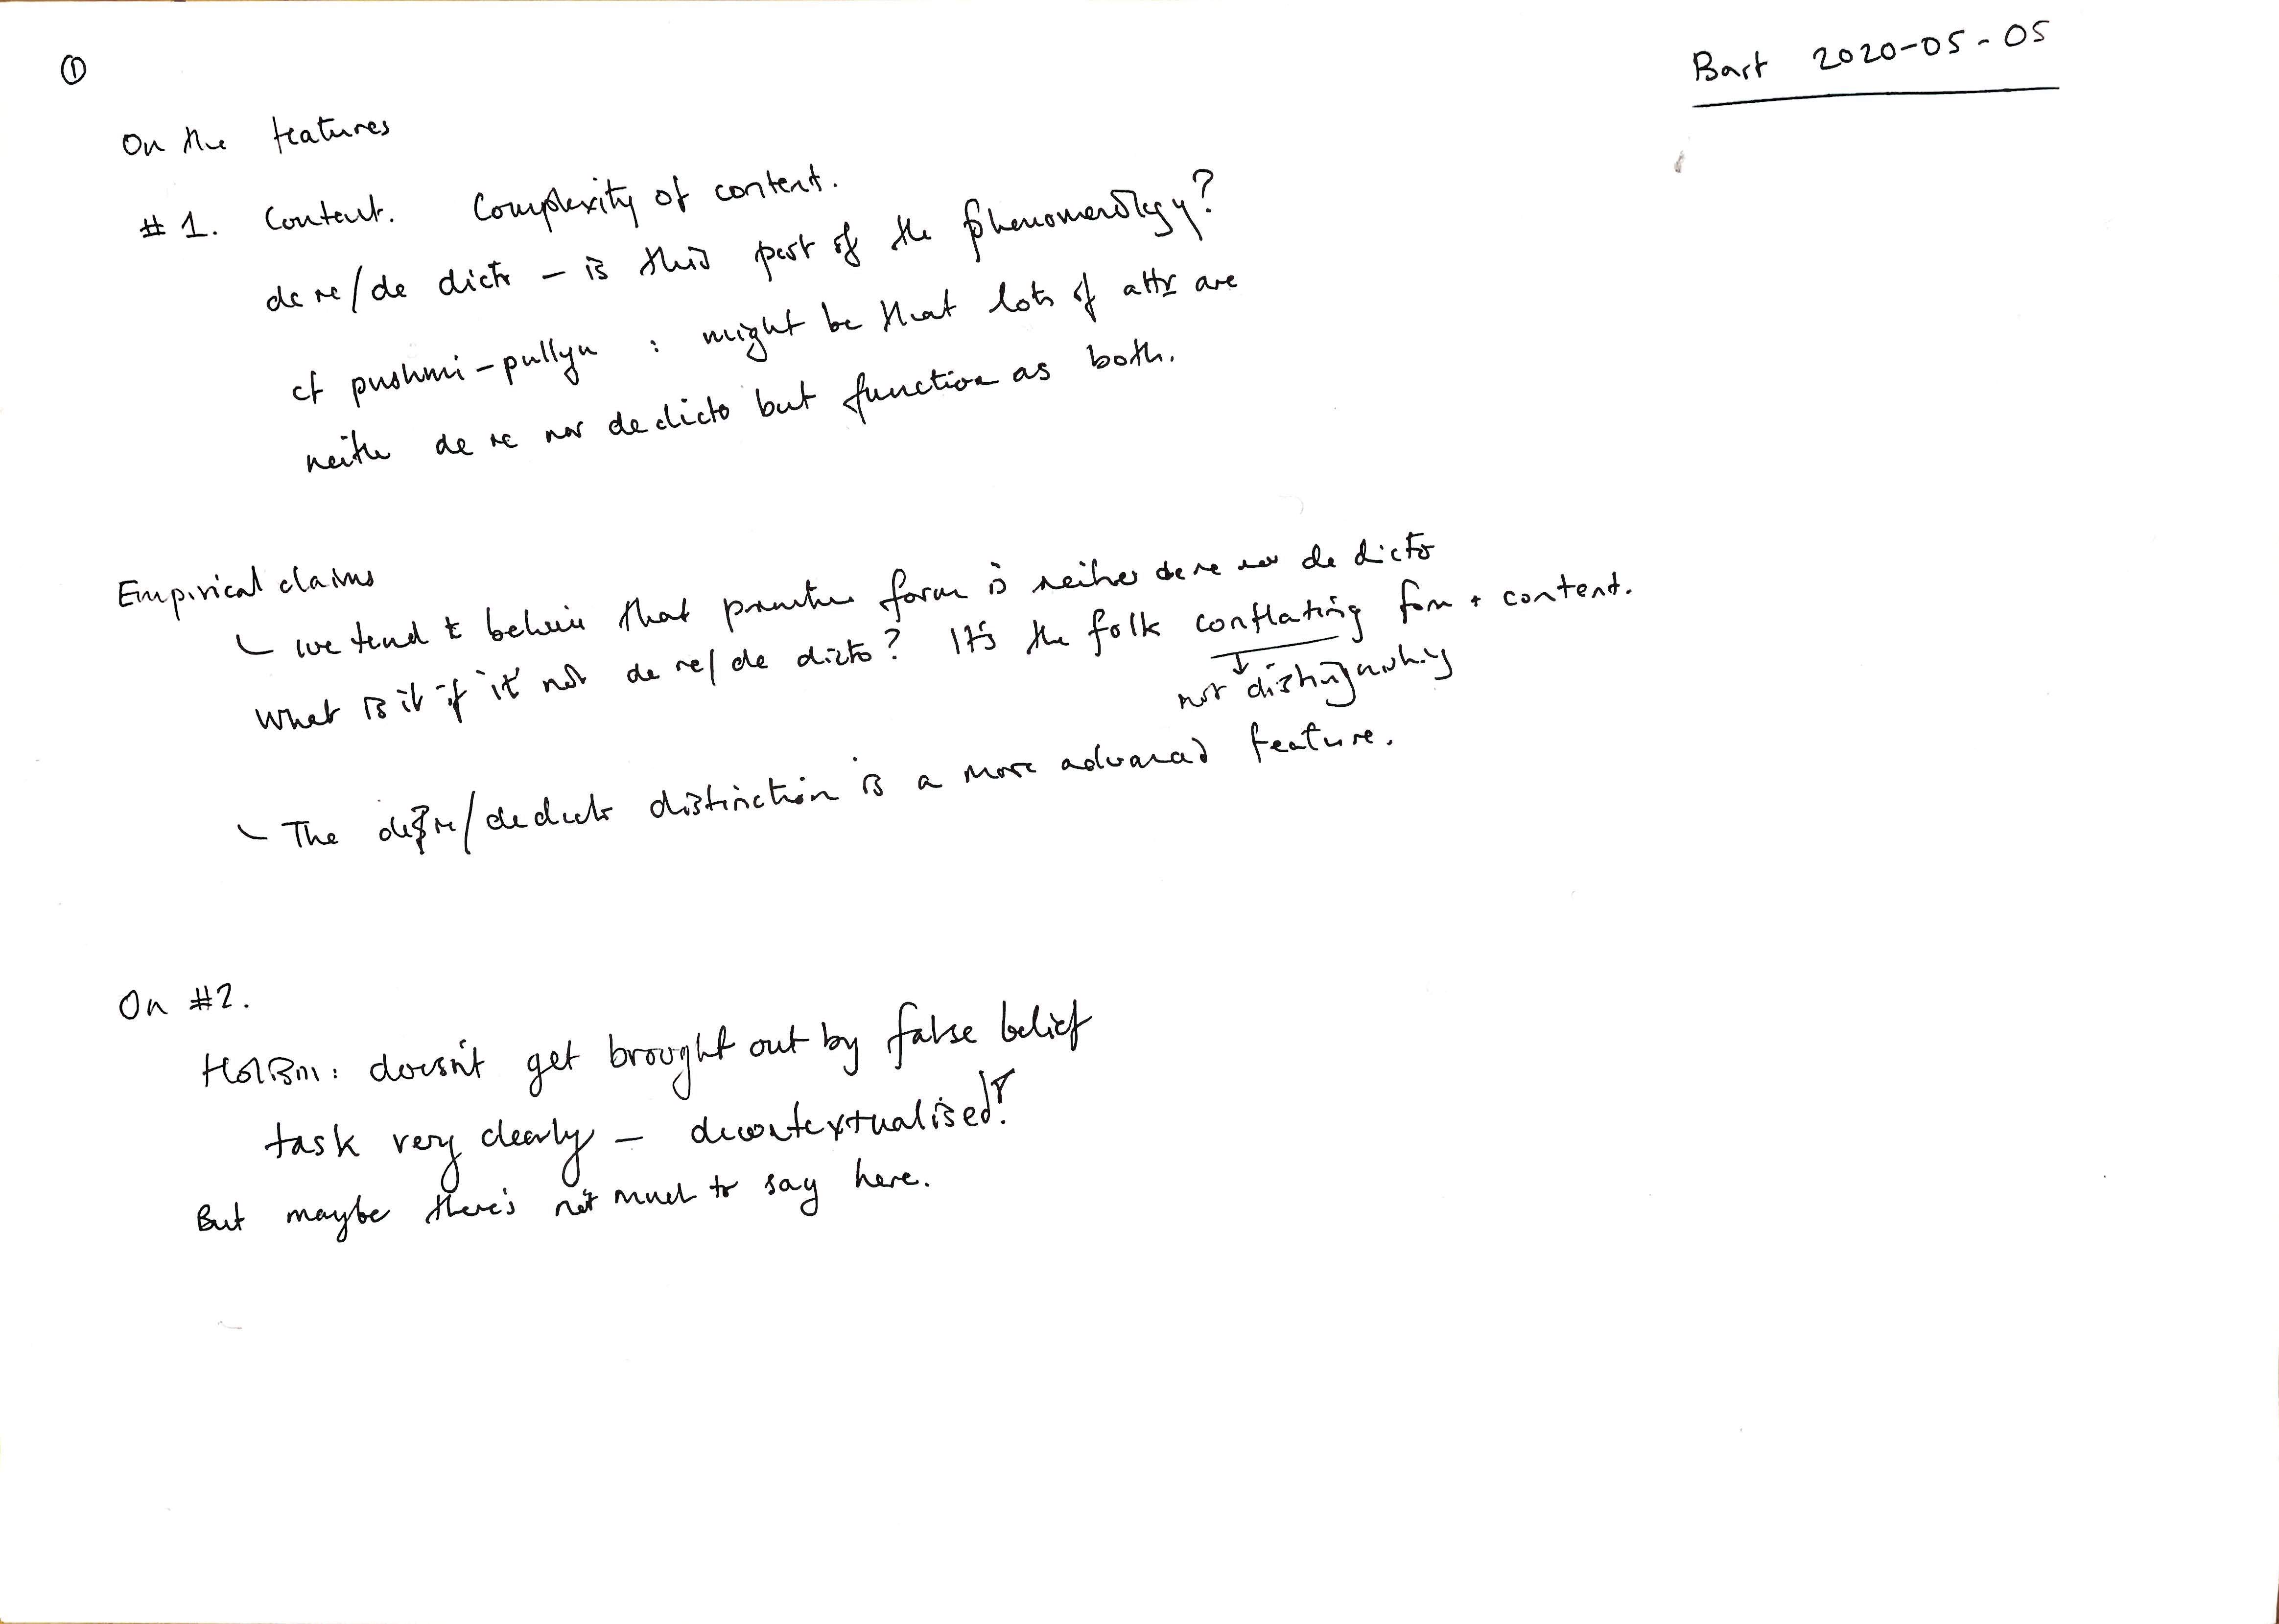 ①
Bart 2020-05-05
On the features
# 1. Content. Complexity of content.
de re/de dicto – is this part of the phenomenology?
cf pushmi-pullyu : might be that lots of attr are
neither de re nor de dicto but function as both.
Empirical claims
we tend to believe that primitive form is neither de re nor de dicto
What is it if it not de re/de dicto? It's the folk conflating form + content.
↓
not distinguishing
The de re/de dicto distinction is a more advanced feature.
On #2.
Holism: doesn't get brought out by false belief
task very clearly – decontextualised?
But maybe there's not much to say here.